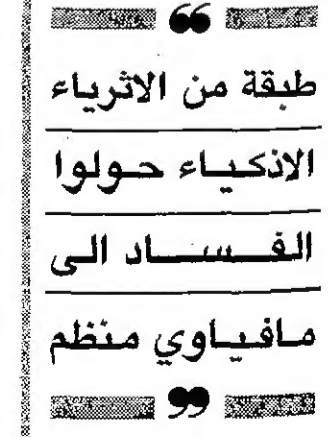 طبقة من الاثرياء
الاذكياء حولوا
الفساد الى
مافياوي منظم